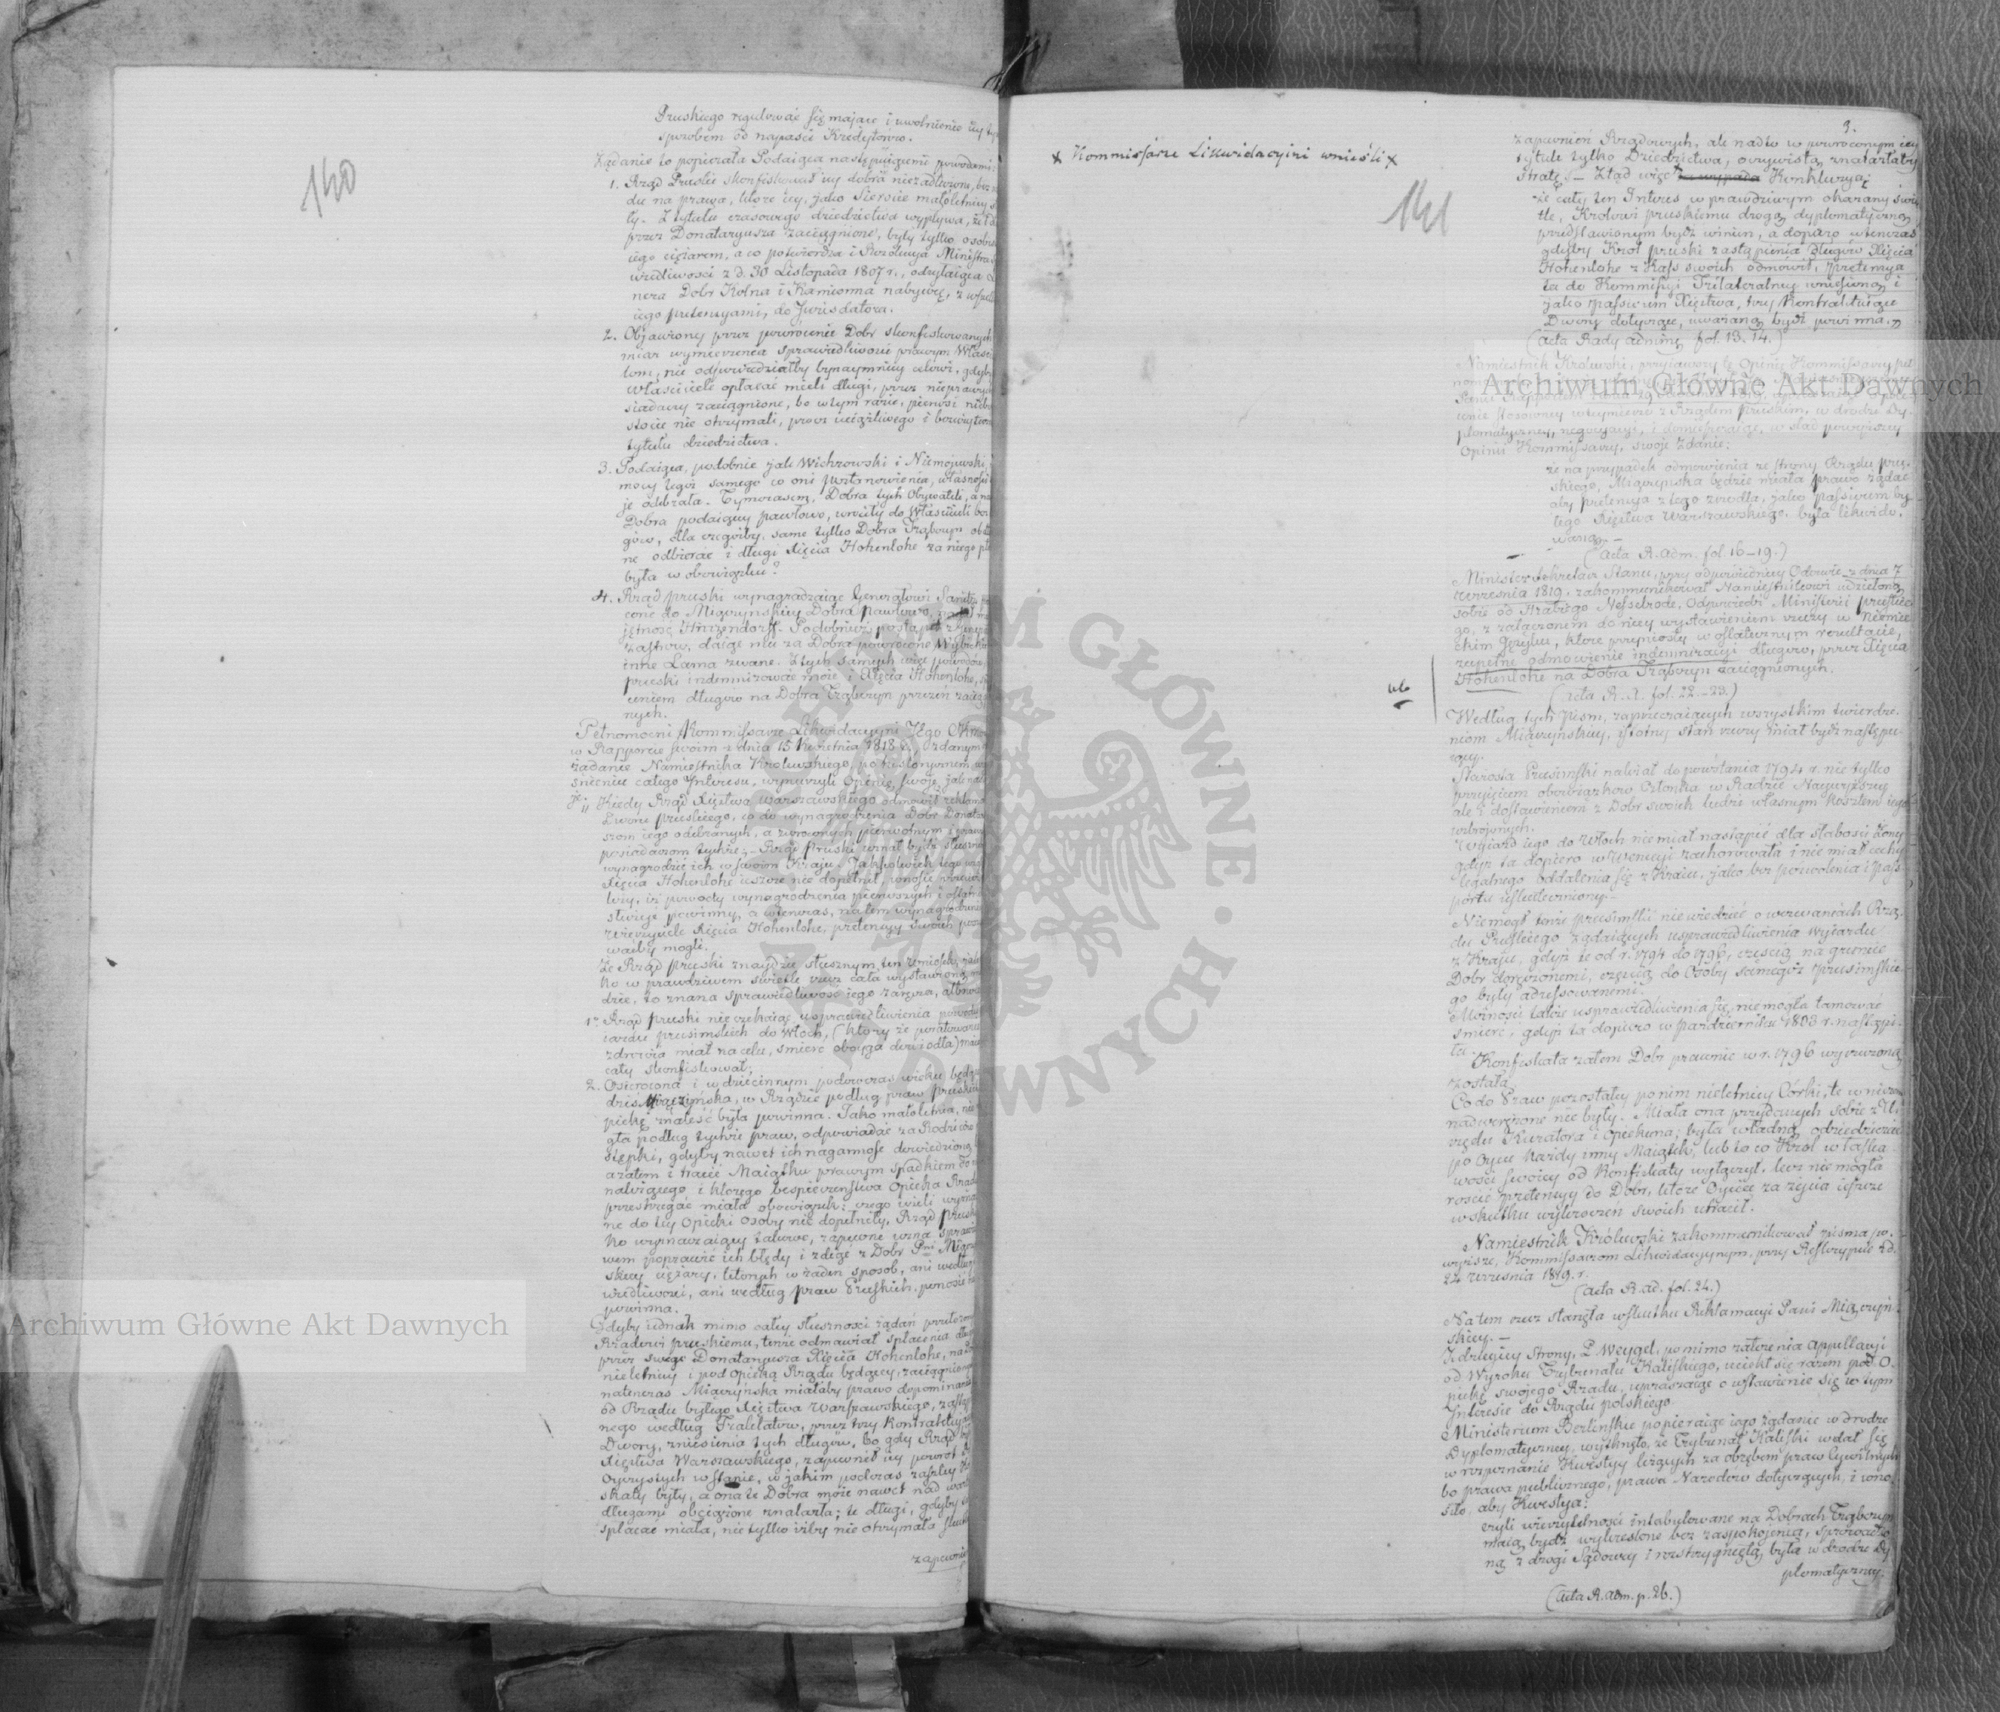 140
Pruskiego regulować się mające i uwolnienie iey tym
sposobem od napaści Kredytorów.
Żądanie to popierała Podaiąca następuiącemi powodami:
1. Rząd Pruski skonfiskował iey dobra niezadłużone, bez
du na prawa, które iey, jako Sierocie małoletniey
ły. Z tytułu czasowego dziedzictwa wypływa, że
przez Donataryusza zaciągnione, były tylko osobis
iego ciężarem, a co potwierdza i Rezolucya Ministra
wiedliwości z d. 30 Listopada 1807 r., odsyłaiąca
nera Dobr Kolna i Kamionna nabywcę, z wszel
iego pretensyami, do Jurisdatora.
2. Objawiony przez powrócenie Dobr skonfiskowanych
miar wymierzenia sprawiedliwości prawym Właści
lom, nie odpowiedziałby bynaymniey celowi, gdyby
Właściciele opłacać mieli długi, przez nieprawych
siadaczy zaciągnione, bo w tym razie, pierwsi nicby
stocie nie otrzymali, prócz uciążliwego i bezużyteczne
tytułu dziedzictwa.
3. Podaiąca, podobnie jak Wichrowski i Niemojewski,
mocy tegoż samego co oni postanowienia, własność
ję odebrała. Tymczasem, Dobra tych Obywateli, a na
Dobra podaiącey Pawłowo, wróciły do Właścicieli bez
gów, dla czegóżby same tylko Dobra Trąbczyn obcią
ne odbierać i długi Xięcia Hohenlohe za niego pła
była w obowiązku?
4. Rząd pruski wynagradzaiąc Generałowi
cone do Miączyńskiey Dobra Pawłowo, nadał
jętność Hünzendorf. Podobnież postąpił z Jenera
Zastrow, daiąc mu za Dobra powrócone Wybickie
inne Lama zwane. Z tych samych więc powodów,
pruski indemnizować może i Xięcia Hohenlohe,
ceniem długów na Dobra Trąbczyn przezeń zaciąg
nych.
Pełnomocni Kommissarze Likwidacyjni Jego
w Rapporcie swoim z dnia 15 Kwietnia 1818 r. zdanym
żądanie Namiestnika Królewskiego, po historycznem
śnieniu całego Interesu, wynurzyli Opinię swoję, jak nast
Kiedy Rząd Xięstwa Warszawskiego odmówił reklama
Dworu pruskiego, co do wynagrodzenia Dobr Donata
szom iego odebranych, a zwróconych pierwotnym i prawym
posiadaczom tychże; Rząd Pruski uznał bydź słuszne
wynagrodzić ich w swoim Kraju. Jakkolwiek tego
Xięcia Hohenlohe ieszcze nie dopełnił, wnosić
leży, iż powody wynagrodzenia pierwszych i ostat
służyć powinny, a wtenczas, na tem wynagrodzeniu
wierzyciele Xięcia Hohenlohe, pretensyi swoich
waliby mogli.
Że Rząd pruski znaydzie słusznym ten wniosek, jak
ko w prawdziwem świetle rzecz cała wystawioną
dzie, to znana sprawiedliwość iego zaręcza, albowiem
1. Rząd pruski nie czekaiąc usprawiedliwienia powodów
iazdu prusimskich do Włoch, (który że poratowanie
zdrowia miał na celu, śmierć oboyga dowiodła)
cały skonfiskował;
2. Osierocona i w dziecinnym podówczas wieku będąca
dziś Miączyńska, w Rządzie podług praw pruskich
piekę znaleść była powinna. Jako małoletnia, nie
gła podług tychże praw, odpowiadać za Rodziców
stępki, gdyby nawet ich naganność dowiedzioną
a zatem i tracić Maiątku prawym spadkiem do
należącego, i którego bezpieczeństwa Opieka
przestrzegać miała obowiązek; czego ieżeli wyzna
ne do tey Opieki osoby nie dopełniły, Rząd prusk
ko wyznaczaiący takowe, zapewne uzna spraw
wem poprawić ich błędy i zdiąć z Dobr Pni Miączyń
skiey ciężary, których w żaden sposób, ani według
wiedliwości, ani według praw Pruskich, ponosić
powinna.
Gdyby iednak mimo całey słuszności żądań przełożo
Rządowi pruskiemu, tenże odmawiał spłacenia dłu
przez swego Donataryusza Xięcia Hohenlohe, na
nieletniey i pod opieką Rządu będącey, zaciągnionych
natenczas Miączyńska miałaby prawo dopominania
od Rządu byłego Xięstwa Warszawskiego, zastąp
nego według Traktatów, przez trzy kontraktuiące
Dwory, zniesienia tych długów, bo gdy Rząd
Xięstwa Warszawskiego, zapewnił iey powrót
Oyczystych w stanie, w jakim podczas zaszłey
skaty były, a ona te Dobra może nawet nad wartość
długami obciążone znalazła; te długi, gdyby
spłacać miała, nie tylko żeby nie otrzymała skut
zapewnień
3.
x Kommissarze Likwidacyini wnieśli x
141
zapewnień Rządowych, ale nadto w powróconym iey
tytule tylko Dziedzictwa, oczywistą znalazłaby
stratę. — Ztąd więc Konkluzya:
że cały ten Interes w prawdziwym okazany świe
tle, Królowi pruskiemu drogą dyplomatyczną
przedstawionym bydź winien, a dopiero wtenczas
gdyby Król pruski zastąpienia długów Xięcia
Hohenlohe z Kass swoich odmówił, pretensya
ta do Kommisyi Trilateralney wniesioną i
jako passivum Xięstwa, trzy Kontraktuiące
Dwory dotyczące, uważaną bydź powinna."
(acta Rady adminey fol. 13. 14.)
Namiestnik Królewski, przyiąwszy tę Opinię Kommissarzy peł
plomatyczney, negocyacyi, i domieszczaiąc, w ślad powyższey
Opinii Kommissarzy, swoje zdanie:
że na przypadek odmówienia ze strony Rządu pru-
skiego, Miączyńska będzie miała prawo żądać
aby pretensya z tego źródła, jako passivum by
łego Xięstwa Warszawskiego, była likwido-
waną. —
(Acta R. adm. fol. 16–19.)
Minister Sekretarz Stanu, przy odpowiedniey Odezwie z dnia 7
Września 1819. zakommunikował Namiestnikowi udzieloną
sobie od Hrabiego Nesselrode, Odpowiedź Ministerii pruskie
go, z załączonem do niey wystawieniem rzeczy w Niemie
ckim Języku, które przyniosły w ostatecznym rezultacie,
zupełne odmówienie indemnizacyi długów, przez Xięcia
Hohenlohe na Dobra Trąbczyn zaciągnionych.
(acta R. A. fol. 22.–23.)
Według tych pism, zaprzeczaiących wszystkim twierdze-
niom Miączyńskiey, istotny stan rzeczy miał bydź następu-
iący.
Starosta Prusimski należał do powstania 1794 r. nie tylko
przyięciem obowiązków Członka w Radzie Naywyższey
ale i dostawieniem z Dobr swoich ludzi własnym kosztem iego
uzbrojonych.
Wyjazd iego do Włoch nie miał nastąpić dla słabości Żony
gdyż ta dopiero w Wenecyi zachorowała i nie miał cechy
legalnego oddalenia się z Kraiu, jako bez pozwolenia i pasz
portu uskuteczniony. —
Nie mógł tenże prusimski nie wiedzieć o wezwaniach Rzą-
du Pruskiego żądaiących usprawiedliwienia wyiazdu
z Kraju, gdyż te od r. 1794 do 1796, częścią na gruncie
Dobr doręczonemi, częścią do Osoby samegoż prusimskie-
go były adressowanemi.
Możności także usprawiedliwienia się, nie mogła tamować
śmierć, gdyż ta dopiero w październiku 1803 r. nastąpi-
ła.
Konfiskata zatem Dobr prawnie w r. 1796 wyrzeczoną
została.
Co do Praw pozostałey po nim nieletniey Córki, te w niczem
nadwerężone nie były. Miała ona przydanych sobie z U-
rzędu Kuratora i Opiekuna; była władną odziedziczać
po Oycu każdy inny Maiątek, lub to co Król w łaska-
wości swoiey od Konfiskaty wyłączył, lecz nie mogła
rościć pretensyi do Dobr, które Oyciec za życia ieszcze
w skutku wykroczeń swoich utracił.
Namiestnik Królewski zakommunikował pisma po-
wyższe, Kommissarzom Likwidacyynym, przy Reskrypcie z d.
24 Września 1819. r.
(acta R. ad. fol. 24.)
Na tem rzecz stanęła w skutku Reklamacyi Pani Miączyń-
skiey. —
Z drugiey strony, P. Weygel, pomimo założenia appellacyi
od Wyroku Trybunału Kaliskiego, uciekł się razem pod O-
piekę swojego Rządu, upraszaiąc o wstawienie się w tym
Interesie do Rządu polskiego.
Ministerium Berlińskie popieraiąc iego żądanie w drodze
Dyplomatyczney, wytknęło, że Trybunał Kaliski wdał się
w rozpoznanie Kwestyi leżących za obrębem praw Cywilnych
bo prawa publicznego, prawa Narodów dotyczących, i wnio-
sło, aby Kwestya:
czyli wierzytelności intabulowane na Dobrach Trąbczyn
maią bydź wykreślone bez zaspokojenia, sprowadzo
ną z drogi Sądowey i rozstrzygniętą była w drodze Dy
plomatyczney.
(acta R. adm. p. 26.)
Archiwum Główne Akt Dawnych
Archiwum Główne Akt Dawnych
ARCHIWUM GŁÓWNE AKT DAWNYCH